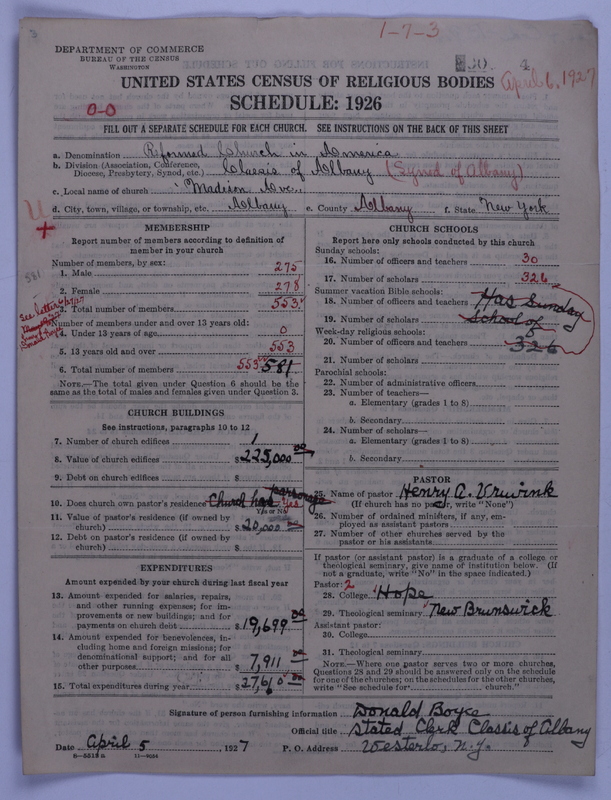 1-7-3
DEPARTMENT OF COMMERCE
BUREAU OF THE CENSUS
WASHINGTON
30. 4
UNITED STATES CENSUS OF RELIGIOUS BODIES
April 6, 1927
SCHEDULE: 1926
0-0
FILL OUT A SEPARATE SCHEDULE FOR EACH CHURCH. SEE INSTRUCTIONS ON THE BACK OF THIS SHEET
a. Denomination Reformed Church in America
b. Division (Association, Conference, Diocese, Presbytery, Synod, etc.) Classis of Albany (Synod of Albany)
c. Local name of church Madison Ave.
d. City, town, village, or township, etc. Albany e. County Albany f. State New York
U
+
581
MEMBERSHIP
Report number of members according to definition of
member in your church
Number of members, by sex:
1. Male 275
2. Female 278
3. Total number of members 553
See letter 6/27/27
Number of members under and over 13 years old:
4. Under 13 years of age 0
5. 13 years old and over 553
6. Total number of members 553 581
NOTE.—The total given under Question 6 should be the
same as the total of males and females given under Question 3.
CHURCH BUILDINGS
See instructions, paragraphs 10 to 12
7. Number of church edifices 1
8. Value of church edifices $225,000 00
9. Debt on church edifices $
10. Does church own pastor's residence Church has parsonage Yes
Yes or No
11. Value of pastor's residence (if owned by
church) $20,000
12. Debt on pastor's residence (if owned by
church) $
EXPENDITURES
Amount expended by your church during last fiscal year
13. Amount expended for salaries, repairs,
and other running expenses; for im-
provements or new buildings; and for
payments on church debt $19,699 00
14. Amount expended for benevolences, in-
cluding home and foreign missions; for
denominational support; and for all
other purposes $7,911 00
15. Total expenditures during year $27,610 00
CHURCH SCHOOLS
Report here only schools conducted by this church
Sunday schools:
16. Number of officers and teachers 30
17. Number of scholars 326
Summer vacation Bible schools:
18. Number of officers and teachers Has Sunday
19. Number of scholars School of
Week-day religious schools:
20. Number of officers and teachers 326
21. Number of scholars
Parochial schools:
22. Number of administrative officers
23. Number of teachers—
a. Elementary (grades 1 to 8)
b. Secondary
24. Number of scholars—
a. Elementary (grades 1 to 8)
b. Secondary
PASTOR
25. Name of pastor Henry A. Vruwink
(If church has no pastor, write "None")
26. Number of ordained ministers, if any, em-
ployed as assistant pastors
27. Number of other churches served by the
pastor or his assistants
If pastor (or assistant pastor) is a graduate of a college or
theological seminary, give name of institution below. (If
not a graduate, write "No" in the space indicated.)
Pastor: 2
28. College Hope
29. Theological seminary New Brunswick
Assistant pastor:
30. College
31. Theological seminary
NOTE.—Where one pastor serves two or more churches,
Questions 28 and 29 should be answered only on the schedule
for one of the churches; on the schedules for the other churches,
write "See schedule for church."
Signature of person furnishing information Donald Boyce
Official title Stated Clerk Classis of Albany
Date April 5, 1927 P. O. Address Westerlo, N.Y.